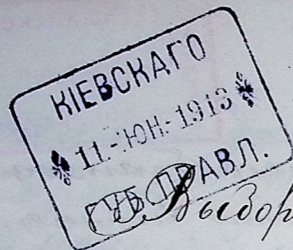 КІЕВСКАГО
11.-ЮН.-1913
ГУБ. ПРАВЛ.
Выбор